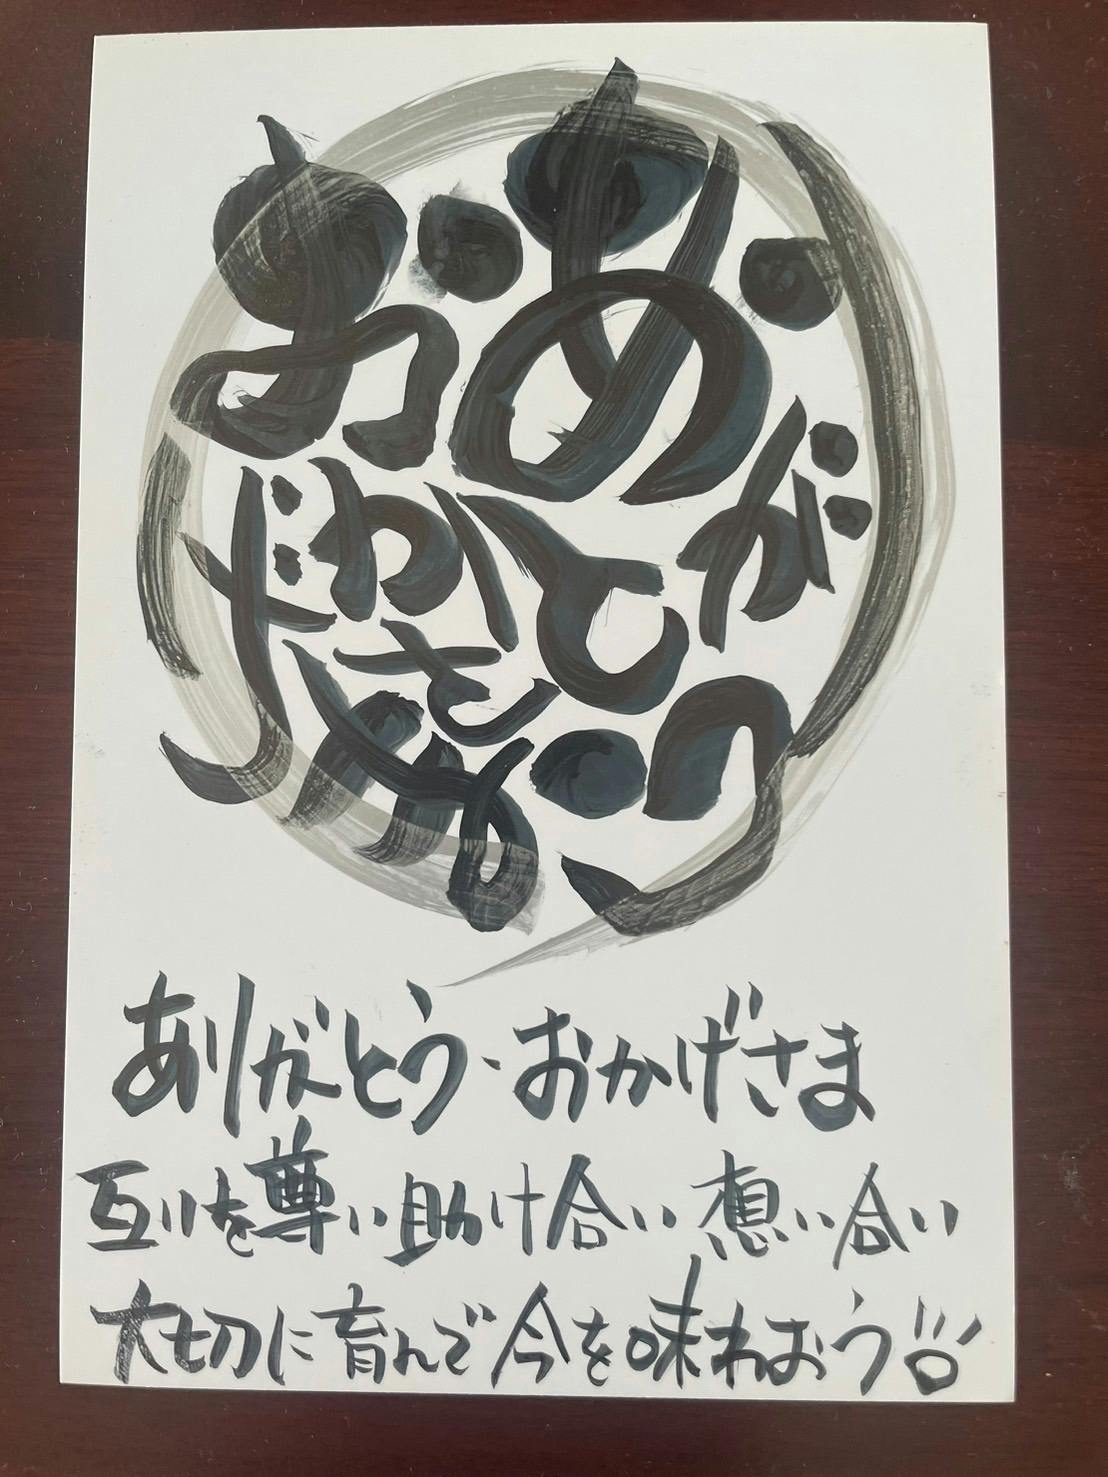 ありがとう
おかげさま
ありがとう・おかげさま
互いを尊い助け合い想い合い
大切に育んで今を味わおう